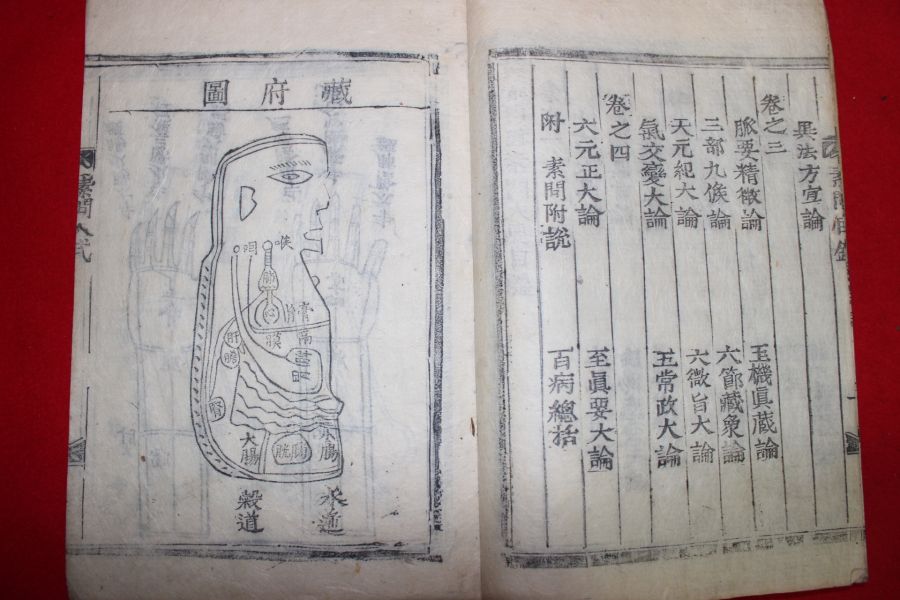 異法方宜論
卷之三
脈要精微論 玉機眞蔵論
三部九候論 六節藏象論
天元紀大論 六微旨大論
氣交變大論 五常政大論
卷之四
六元正大論 至眞要大論
附 素問附說 百病總括
藏府圖
喉
咽
肺
心
膏
膈
膜
肝
膽
胃
腎
小腸
大腸
水道
穀道
素問入式